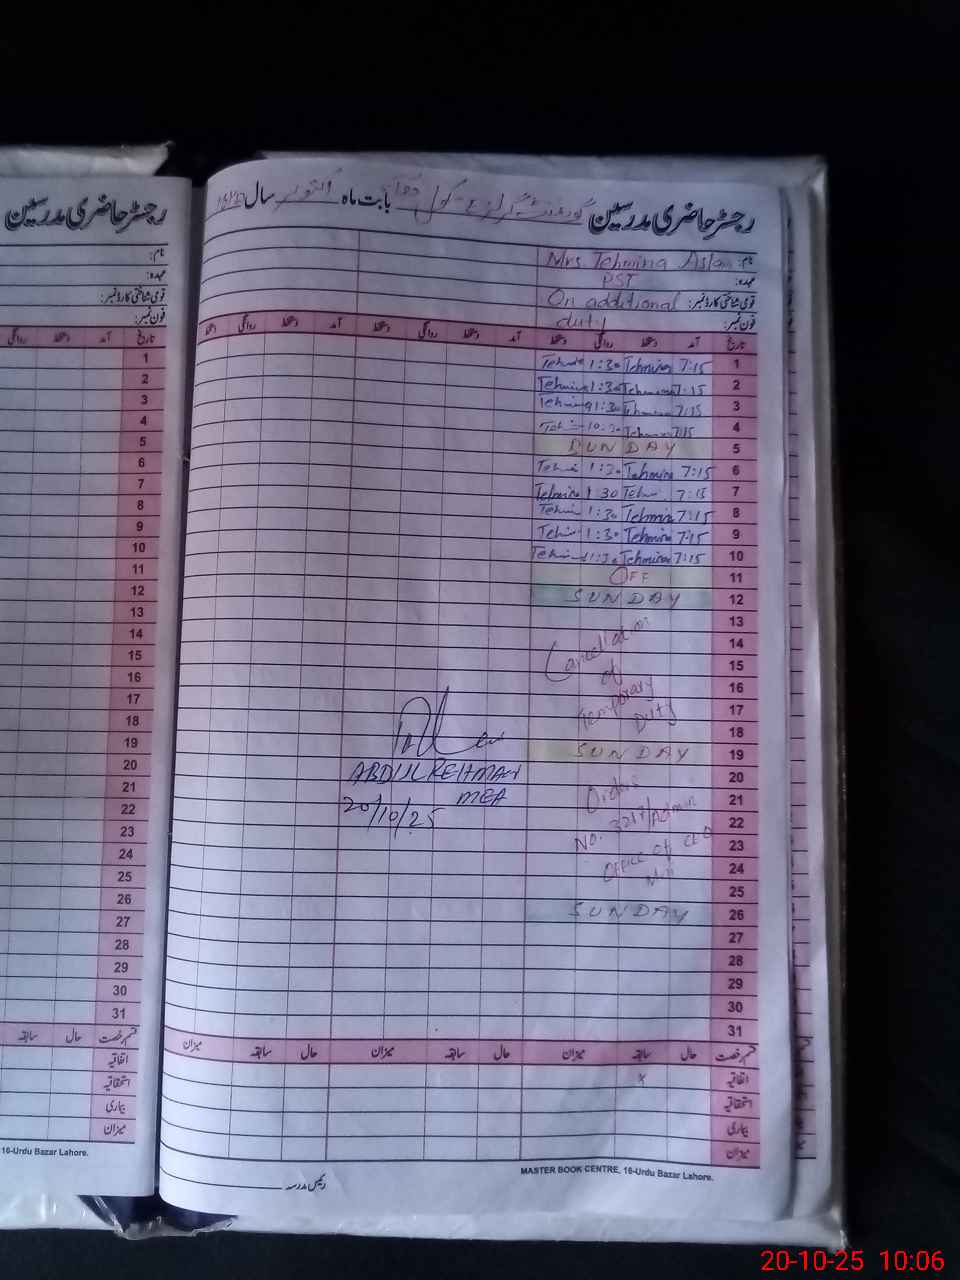 رجسٹر حاضری مدرسین
نام:
عہدہ:
قومی شناختی کارڈ نمبر:
فون نمبر:
تاریخ آمد دستخط روانگی
1
2
3
4
5
6
7
8
9
10
11
12
13
14
15
16
17
18
19
20
21
22
23
24
25
26
27
28
29
30
31
قسم رخصت حال سابقہ
اتفاقیہ
استحقاقیہ
بیماری
میزان
16-Urdu Bazar Lahore.
رجسٹر حاضری مدرسین گورنمنٹ گرلز بابت ماہ اکتوبر سال
نام: Mrs. Tehmina Aslam
عہدہ: PST
قومی شناختی کارڈ نمبر: On additional
فون نمبر: duty
تاریخ آمد دستخط روانگی دستخط آمد دستخط روانگی دستخط آمد دستخط روانگی دستخط
Tehmi 1:30 Tehmina 7:15 1
Tehmina 1:30 Tehmina 7:15 2
Tehmina 1:30 Tehmina 7:15 3
Tehmi 10:30 Tehmina 7:15 4
SUNDAY 5
Tehmi 1:30 Tehmina 7:15 6
Tehmina 1:30 Tehmi 7:15 7
Tehmi 1:30 Tehmina 7:15 8
Tehmi 1:30 Tehmina 7:15 9
Tehmi 11:30 Tehmina 7:15 10
OFF 11
SUNDAY 12
13
Cancellation 14
of 15
Temporary 16
Duty 17
18
SUNDAY 19
20
Orders 21
No. 3217/Admin 22
Office of CEO 23
24
25
SUNDAY 26
27
28
29
30
31
ABDUL REHMAN
MEA
20/10/25
قسم رخصت حال سابقہ میزان حال سابقہ میزان حال سابقہ میزان
اتفاقیہ x
استحقاقیہ
بیماری
میزان
MASTER BOOK CENTRE, 16-Urdu Bazar Lahore.
رئیس مدرسہ
20-10-25 10:06